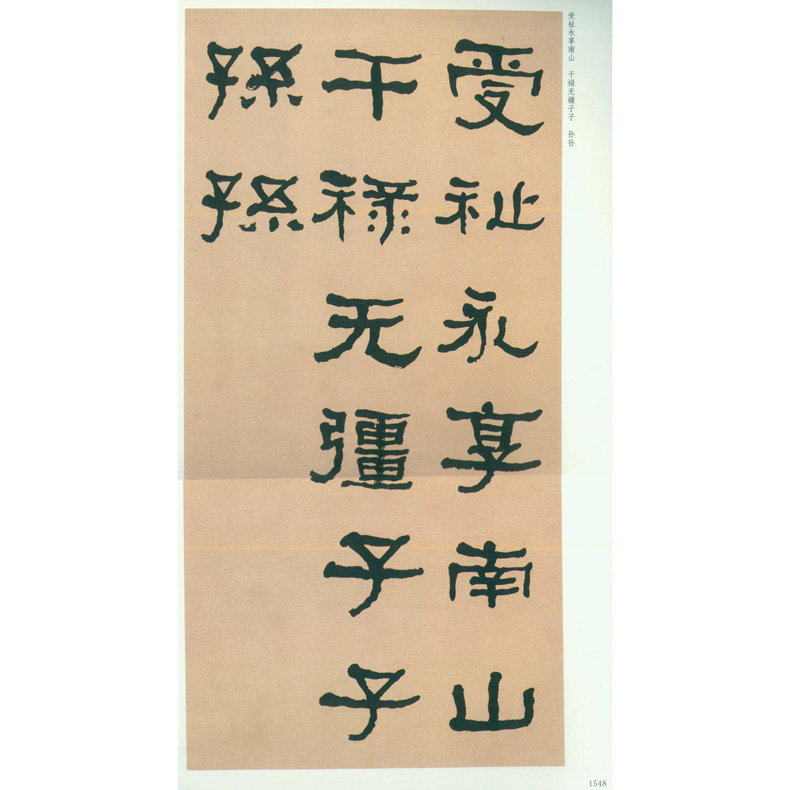 受祉永享南山
干禄无彊子子
孫孫
受祉永享南山　干禄无疆子子　孙孙
1548